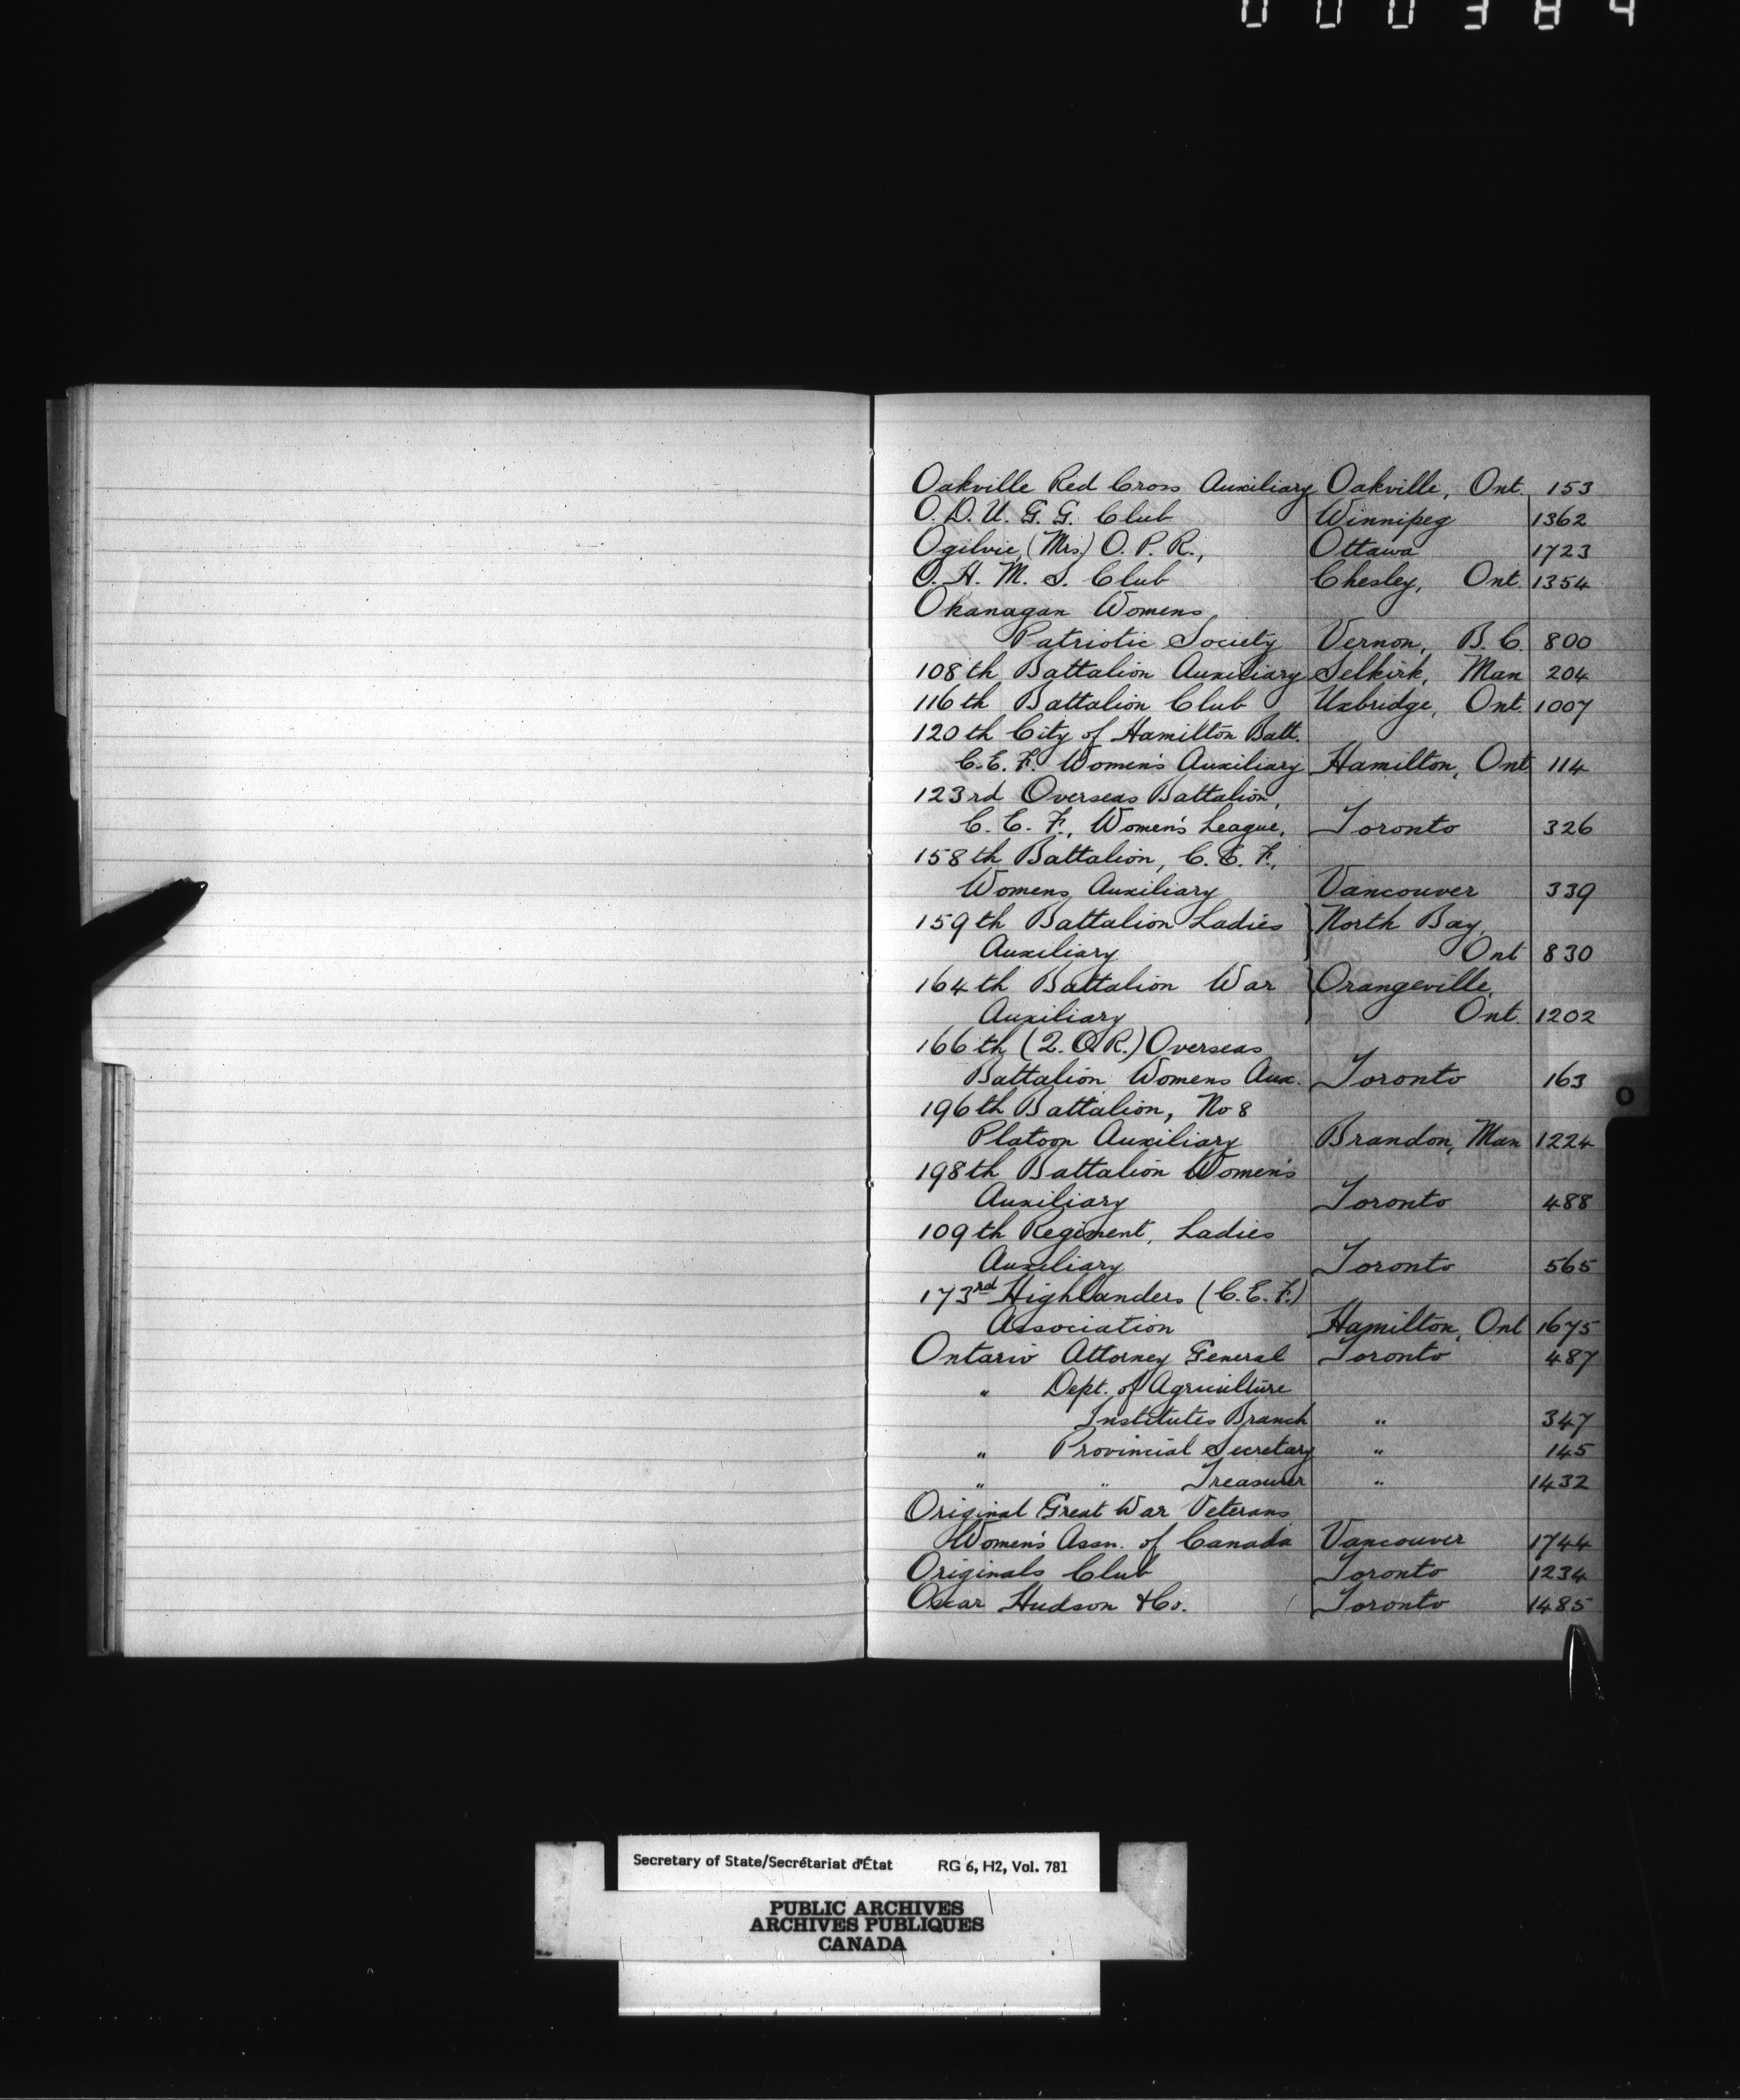 000384
Oakville Red Cross Auxiliary Oakville, Ont. 153
O.D.U.G.G. Club Winnipeg 1362
Ogilvie, (Mrs.) O.P.R., Ottawa 1723
O.H.M.S. Club Chesley, Ont. 1354
Okanagan Womens,
Patriotic Society Vernon, B.C. 800
108th Battalion Auxiliary Selkirk, Man 204
116th Battalion Club Uxbridge, Ont. 1007
120th City of Hamilton Batt.
C.E.F. Women's Auxiliary Hamilton, Ont 114
123rd Overseas Battalion,
C.E.F., Women's League, Toronto 326
158th Battalion, C.E.F.,
Womens Auxiliary Vancouver 339
159th Battalion Ladies North Bay,
Auxiliary Ont 830
164th Battalion War Orangeville,
Auxiliary Ont. 1202
166th (Q.O.R.) Overseas
Battalion Womens Aux. Toronto 163
196th Battalion, No 8
Platoon Auxiliary Brandon, Man 1224
198th Battalion Women's
Auxiliary Toronto 488
109th Regiment, Ladies
Auxiliary Toronto 565
173rd Highlanders (C.E.F.)
Association Hamilton, Ont 1675
Ontario Attorney General Toronto 487
" Dept. of Agriculture
Institutes Branch " 347
" Provincial Secretary " 145
" " Treasurer " 1432
Original Great War Veterans
Women's Assn. of Canada Vancouver 1744
Originals Club Toronto 1234
Oscar Hudson & Co. Toronto 1485
O
Secretary of State/Secrétariat d'État RG 6, H2, Vol. 781
PUBLIC ARCHIVES
ARCHIVES PUBLIQUES
CANADA